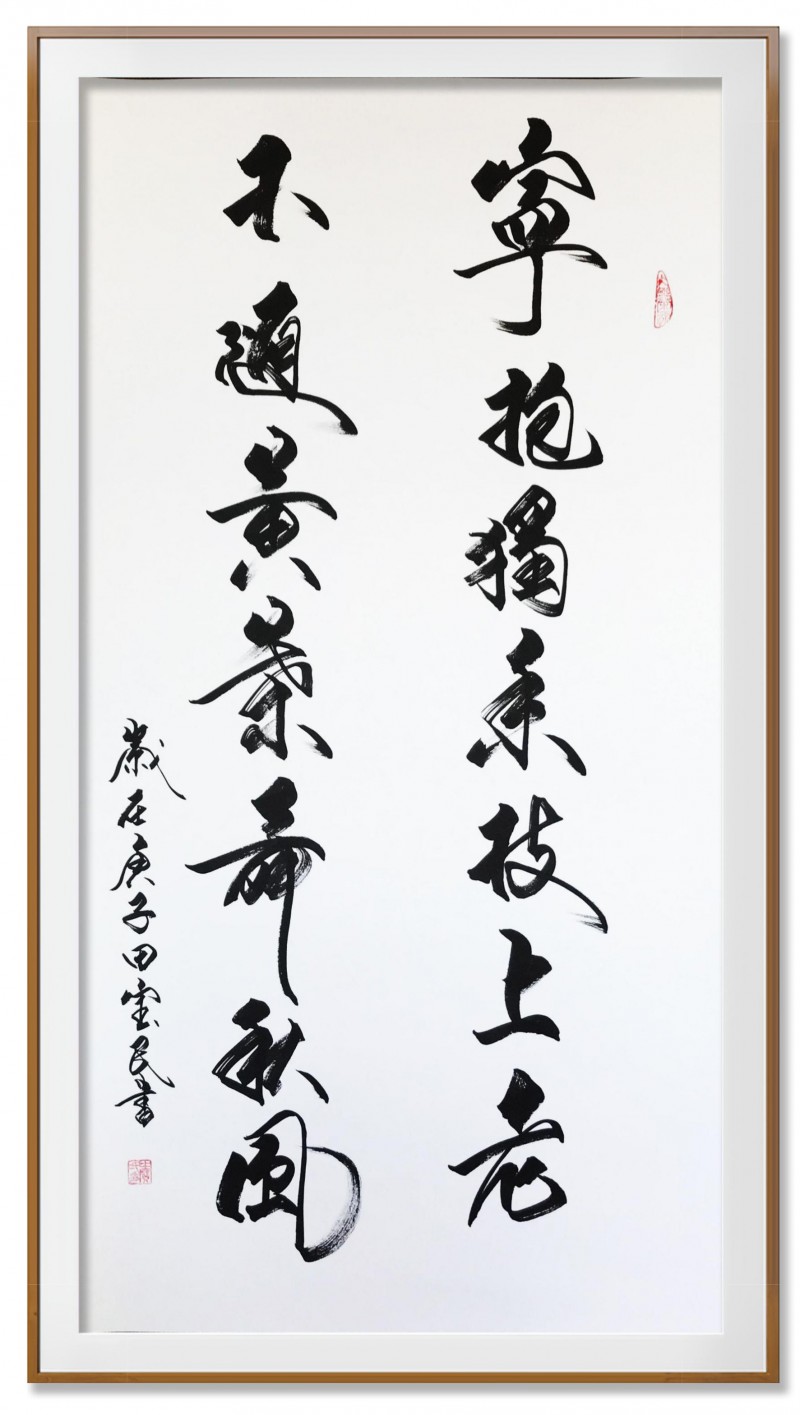 寧抱獨枝上老
不隨黃葉舞秋風
歲在庚子田宝民書